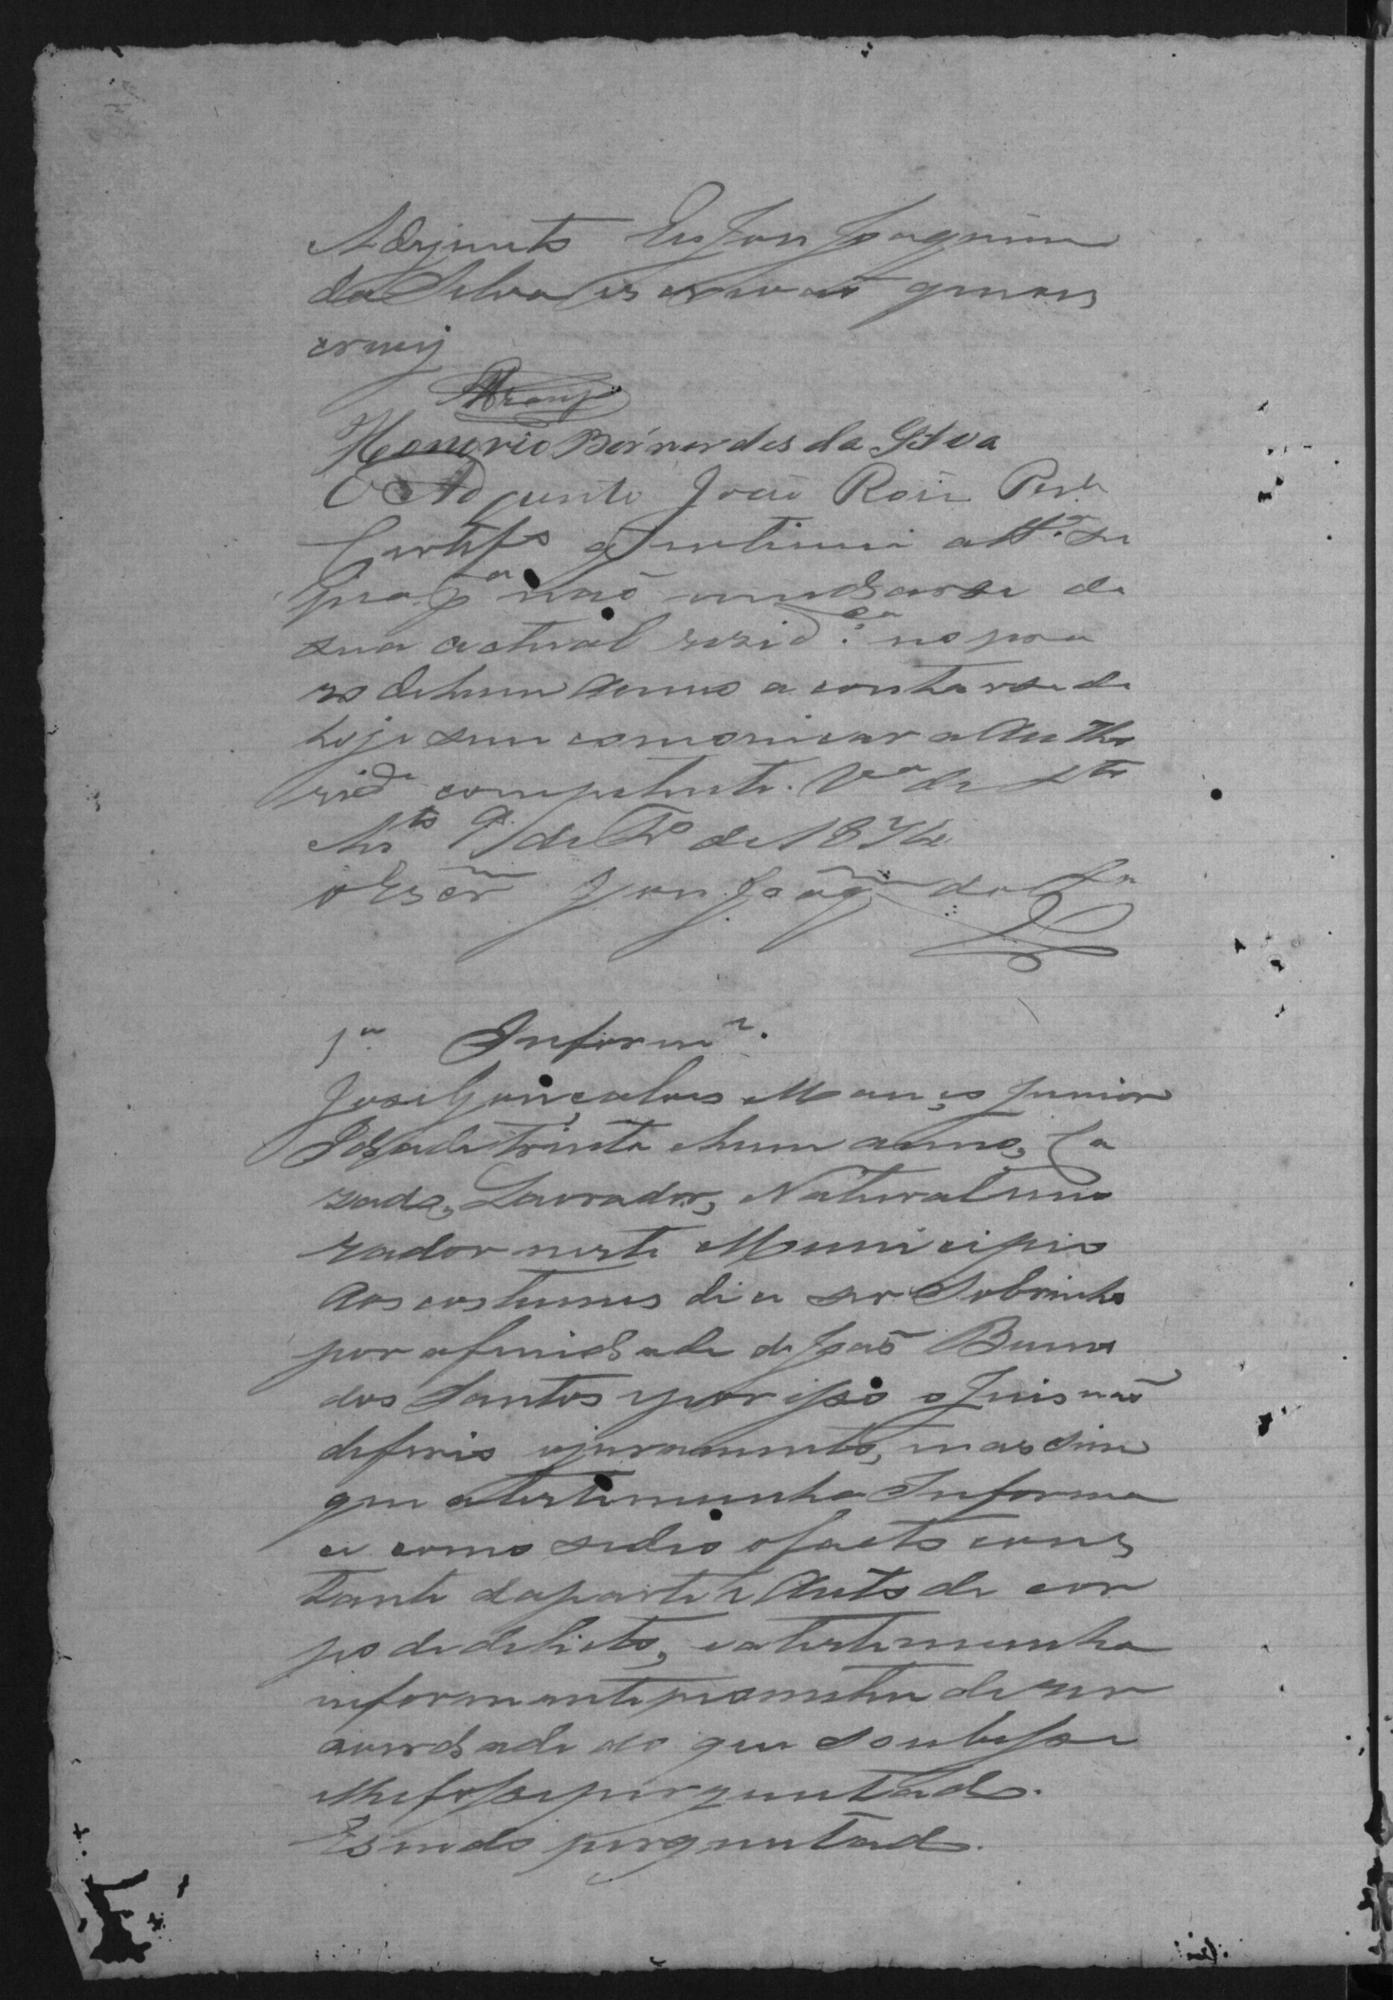 Adjunto Eu Jose Joaquim
da Silva escrivaõ que o es
crevy
Araujo
Honorio Bernardes da Silva
O Adjunto João Roiz Per.ª
Certif.º q intimei a tt.ª su
pra p.ª naõ mudarse de
sua actual rezid.ca no pra
so de hum anno a contar se de
hoje sem comonicar a Autho
rid.e competente. V.ª de S.to
Ant.º 9 de F.º de 1874
o Escr.m Jose Joaq.m da S.ª
1.ª Inform.e
Jose Gonçalves Manços Junior
Idade trinta e hum annos, Ca
zado, Lavrador, Natural e mo
rador neste Municipio
aos costumes dice ser Sobrinho
por afinidade de Joaõ Bueno
dos Santos e por isso o Juis naõ
deferio o juramento, mas sim
que a testemunha Informa
ce como se deo o facto cons
tante da parte e Auto de cor
po de delicto, e a testemunha
informante prometeu dizer
a verdade do que soubesse
e lhe fosse perguntado.
E sendo perguntado.